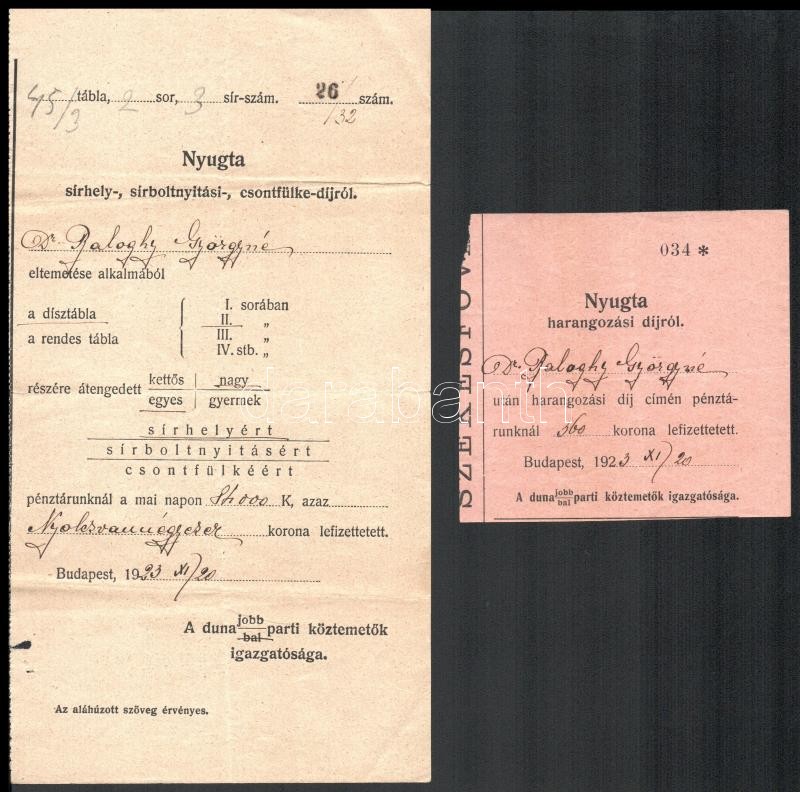 45/3 tábla, 2 sor, 3 sír-szám. 26 szám.
/32
Nyugta
sírhely-, sírboltnyitási-, csontfülke-díjról.
Dr. Baloghy Györgyné
eltemetése alkalmából
a dísztábla
a rendes tábla
I. sorában
II. „
III. „
IV. stb. „
részére átengedett kettős nagy
egyes gyermek
sírhelyért
sírboltnyitásért
csontfülkéért
pénztárunknál a mai napon 84000 K, azaz
Nyolcvannégyezer korona lefizettetett.
Budapest, 1923 XI/20
A duna jobb parti köztemetők
bal
igazgatósága.
Az aláhúzott szöveg érvényes.
034 *
Nyugta
harangozási díjról.
Dr. Baloghy Györgyné
után harangozási díj címén pénztá-
runknál 560 korona lefizettetett.
Budapest, 1923 XI/20
A duna jobb parti köztemetők igazgatósága.
bal
darabanth